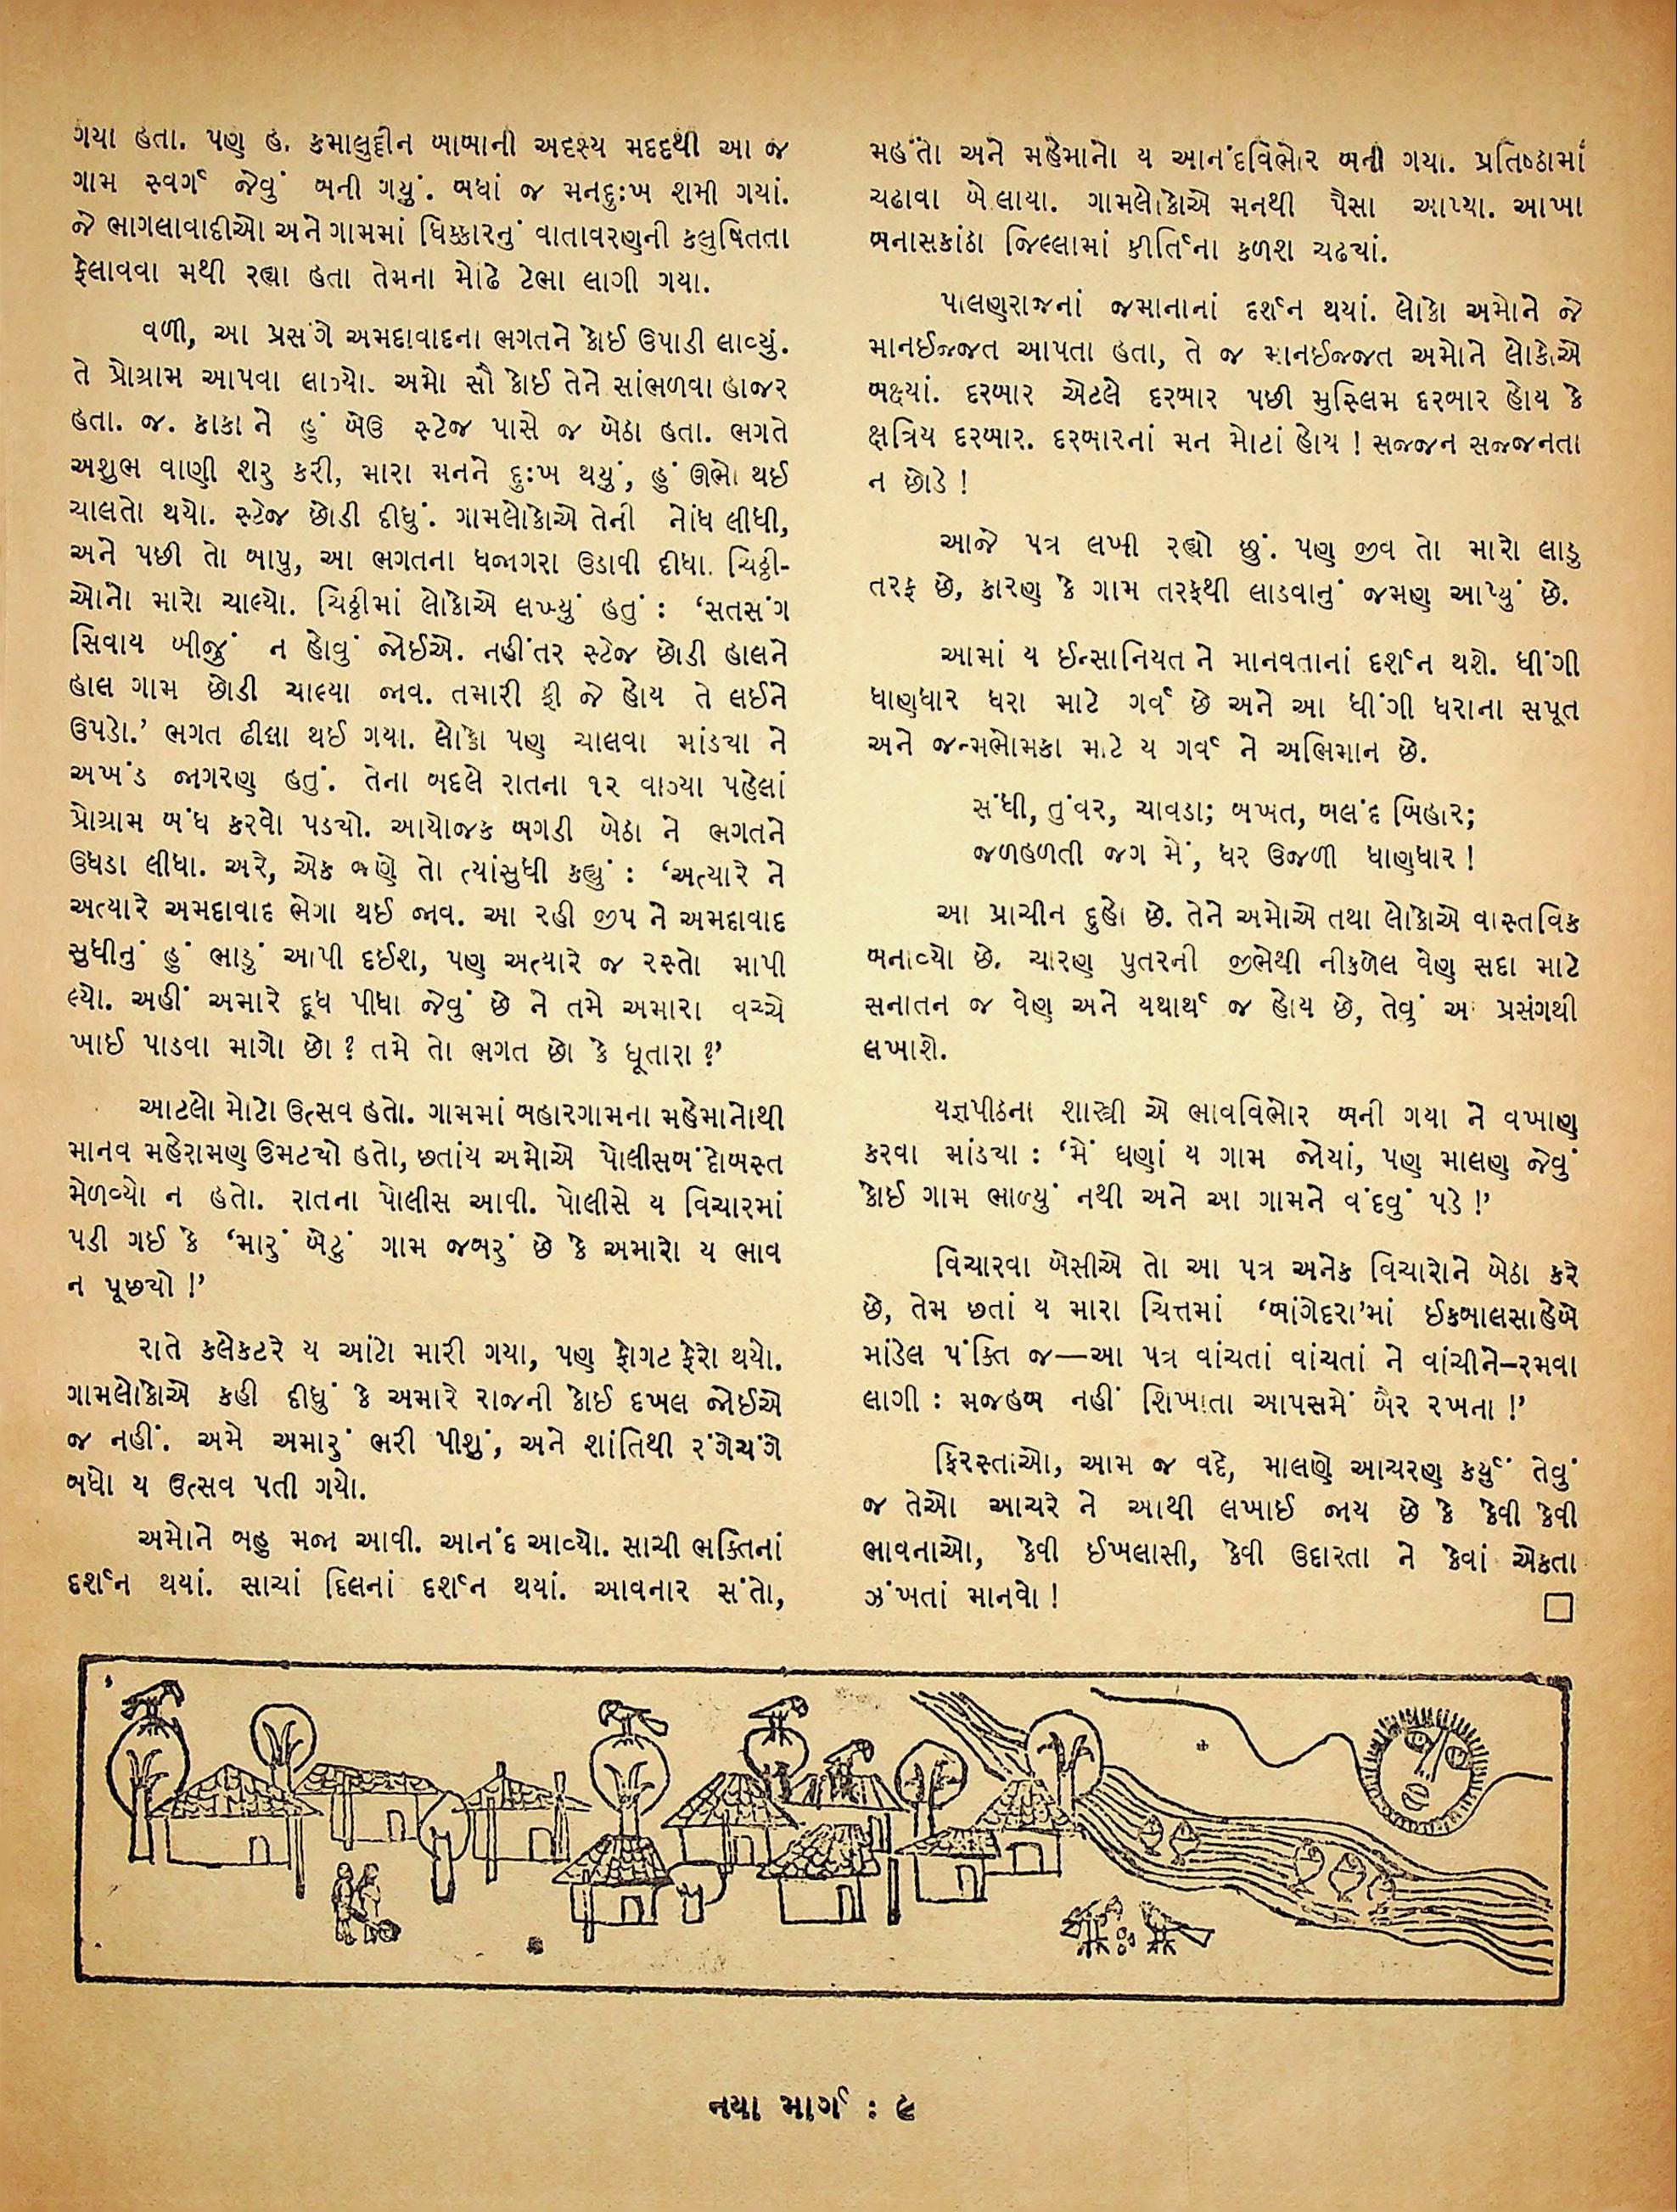 ગયા હતા. પણ હ. કમાલુદ્દીન બાબાની અદૃશ્ય મદદથી આ જ
ગામ સ્વર્ગ જેવું બની ગયું. બધાં જ મનદુઃખ શમી ગયાં.
જે ભાગલાવાદીઓ અને ગામમાં ધિક્કારનું વાતાવરણની કલુષિતતા
ફેલાવવા મથી રહ્યા હતા તેમના મોઢે ટેભા લાગી ગયા.
વળી, આ પ્રસંગે અમદાવાદના ભગતને કોઈ ઉપાડી લાવ્યું.
તે પ્રોગ્રામ આપવા લાગ્યો. અમો સૌ કોઈ તેને સાંભળવા હાજર
હતા. જ. કાકા ને હું બેઉ સ્ટેજ પાસે જ બેઠા હતા. ભગતે
અશુભ વાણી શરુ કરી, મારા મનને દુઃખ થયું, હું ઊભો થઈ
ચાલતો થયો. સ્ટેજ છોડી દીધું. ગામલોકોએ તેની નોંધ લીધી,
અને પછી તો બાપુ, આ ભગતના ધજાગરા ઉડાવી દીધા. ચિઠ્ઠી-
ઓનો મારો ચાલ્યો. ચિઠ્ઠીમાં લોકોએ લખ્યું હતું : ‘સતસંગ
સિવાય બીજું ન હોવું જોઈએ. નહીંતર સ્ટેજ છોડી હાલને
હાલ ગામ છોડી ચાલ્યા જાવ. તમારી ફી જે હોય તે લઈને
ઉપડો.’ ભગત ઢીલા થઈ ગયા. લોકો પણ ચાલવા માંડયા ને
અખંડ જાગરણ હતું. તેના બદલે રાતના ૧૨ વાગ્યા પહેલાં
પ્રોગ્રામ બંધ કરવો પડયો. આયોજક બગડી બેઠા ને ભગતને
ઉધડા લીધા. અરે, એક જણે તો ત્યાંસુધી કહ્યું : ‘અત્યારે ને
અત્યારે અમદાવાદ ભેગા થઈ જાવ. આ રહી જીપ ને અમદાવાદ
સુધીનું હું ભાડું આપી દઈશ, પણ અત્યારે જ રસ્તો માપી
લ્યો. અહીં અમારે દૂધ પીધા જેવું છે ને તમે અમારા વચ્ચે
ખાઈ પાડવા માગો છો ? તમે તો ભગત છો કે ધૂતારા ?’
આટલો મોટો ઉત્સવ હતો. ગામમાં બહારગામના મહેમાનોથી
માનવ મહેરામણ ઉમટયો હતો, છતાંય અમોએ પોલીસબંદોબસ્ત
મેળવ્યો ન હતો. રાતના પોલીસ આવી. પોલીસે ય વિચારમાં
પડી ગઈ કે ‘મારું બેટું ગામ જબરું છે કે અમારો ય ભાવ
ન પૂછયો !’
રાતે કલેકટરે ય આંટો મારી ગયા, પણ ફોગટ ફેરો થયો.
ગામલોકોએ કહી દીધું કે અમારે રાજની કોઈ દખલ જોઈએ
જ નહીં. અમે અમારું ભરી પીશું, અને શાંતિથી રંગેચંગે
બધો ય ઉત્સવ પતી ગયો.
અમોને બહુ મજા આવી. આનંદ આવ્યો. સાચી ભક્તિનાં
દર્શન થયાં. સાચાં દિલનાં દર્શન થયાં. આવનાર સંતો,
મહંતો અને મહેમાનો ય આનંદવિભોર બની ગયા. પ્રતિષ્ઠામાં
ચઢાવા બોલાયા. ગામલોકોએ મનથી પૈસા આપ્યા. આખા
બનાસકાંઠા જિલ્લામાં કીર્તિના કળશ ચઢયાં.
પાલણરાજનાં જમાનાનાં દર્શન થયાં. લોકો અમોને જે
માનઈજ્જત આપતા હતા, તે જ માનઈજ્જત અમોને લોકોએ
બક્ષ્યાં. દરબાર એટલે દરબાર પછી મુસ્લિમ દરબાર હોય કે
ક્ષત્રિય દરબાર. દરબારનાં મન મોટાં હોય ! સજ્જન સજ્જનતા
ન છોડે !
આજે પત્ર લખી રહ્યો છું. પણ જીવ તો મારો લાડુ
તરફ છે, કારણ કે ગામ તરફથી લાડવાનું જમણ આપ્યું છે.
આમાં ય ઈન્સાનિયત ને માનવતાનાં દર્શન થશે. ધીંગી
ધાણધાર ધરા માટે ગર્વ છે અને આ ધીંગી ધરાના સપૂત
અને જન્મભોમકા માટે ય ગર્વ ને અભિમાન છે.
સંધી, તુંવર, ચાવડા; બખત, બલંદ બિહાર;
જળહળતી જગ મેં, ધર ઉજળી ધાણધાર !
આ પ્રાચીન દુહો છે. તેને અમોએ તથા લોકોએ વાસ્તવિક
બનાવ્યો છે. ચારણ પુતરની જીભેથી નીકળેલ વેણ સદા માટે
સનાતન જ વેણ અને યથાર્થ જ હોય છે, તેવું આ પ્રસંગથી
લખાશે.
યજ્ઞપીઠના શાસ્ત્રી એ ભાવવિભોર બની ગયા ને વખાણ
કરવા માંડયા : ‘મેં ઘણાં ય ગામ જોયાં, પણ માલણ જેવું
કોઈ ગામ ભાળ્યું નથી અને આ ગામને વંદવું પડે !’
વિચારવા બેસીએ તો આ પત્ર અનેક વિચારોને બેઠા કરે
છે, તેમ છતાં ય મારા ચિત્તમાં ‘બાંગેદરા’માં ઈકબાલસાહેબે
માંડેલ પંક્તિ જ—આ પત્ર વાંચતાં વાંચતાં ને વાંચીને–રમવા
લાગી : મજહબ નહીં શિખાતા આપસમેં બૈર રખના !’
ફિરસ્તાઓ, આમ જ વદે, માલણે આચરણ કર્યું તેવું
જ તેઓ આચરે ને આથી લખાઈ જાય છે કે કેવી કેવી
ભાવનાઓ, કેવી ઈખલાસી, કેવી ઉદારતા ને કેવાં એકતા
ઝંખતાં માનવો !
નયા માર્ગ : ૯